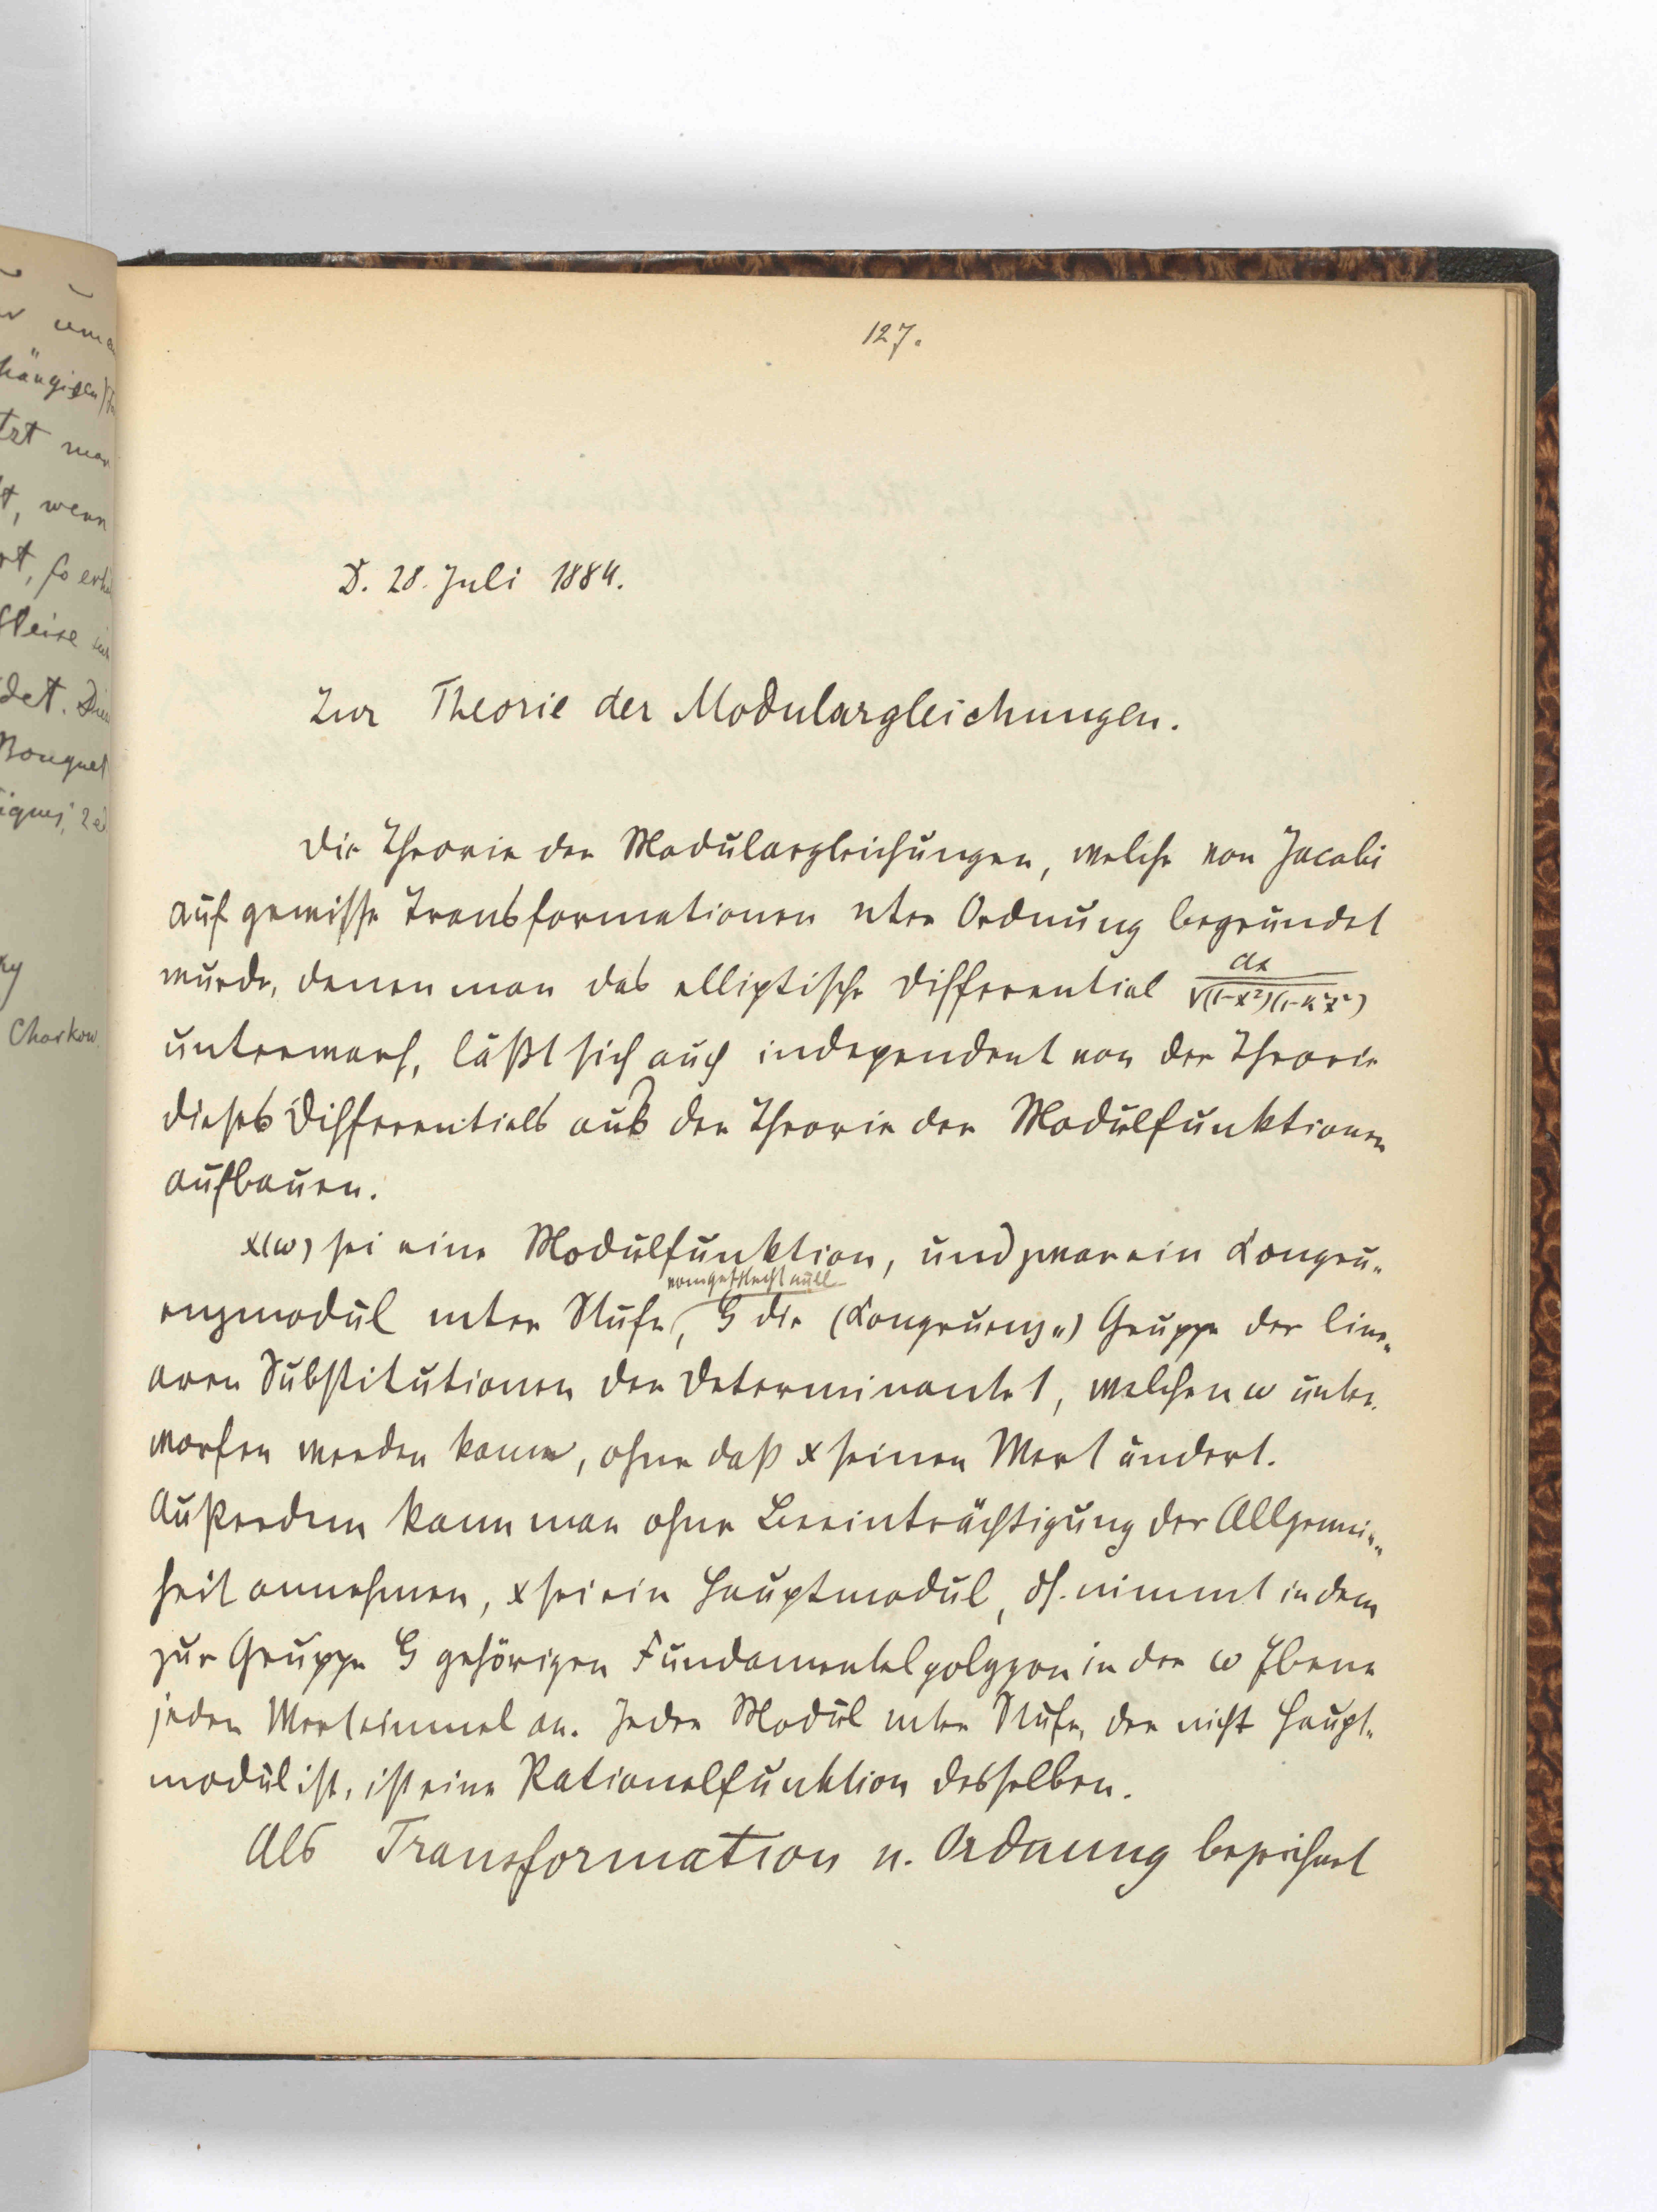 127.
D. 28. Juli 1884.
Zur Theorie der Modulargleichungen.
Die Theorie der Modulargleichungen, welche von Jacobi
auf gewisse Transformationen nter Ordnung begründet
wurde, denen man das elliptische Differential dx/√((1-x²)(1-k²x²))
unterwarf, läßt sich auch independent von der Theorie
dieses Differentials aus der Theorie der Modulfunktionen
aufbauen.
x(ω) sei eine Modulfunktion, und zwar ein Kongru„
vom Geschlecht null
enzmodul mter Stufe, G die (Kongruenz„) Gruppe der line„
aren Substitutionen der Determinante 1, welchen ω unter„
worfen werden kann, ohne daß x seinen Wert ändert.
Außerdem kann man ohne Beeinträchtigung der Allgemein„
heit annehmen, x sei ein Hauptmodul, dh. nimmt in dem
zur Gruppe G gehörigen Fundamentalpolygon in der ω Ebene
jeden Wert einmal an. Jeder Modul mter Stufe, der nicht Haupt„
modul ist, ist eine Rationalfunktion desselben.
Als Transformation n. Ordnung bezeichnet
hängigen)
wenn
so
det.
Bouquet
Charkow.